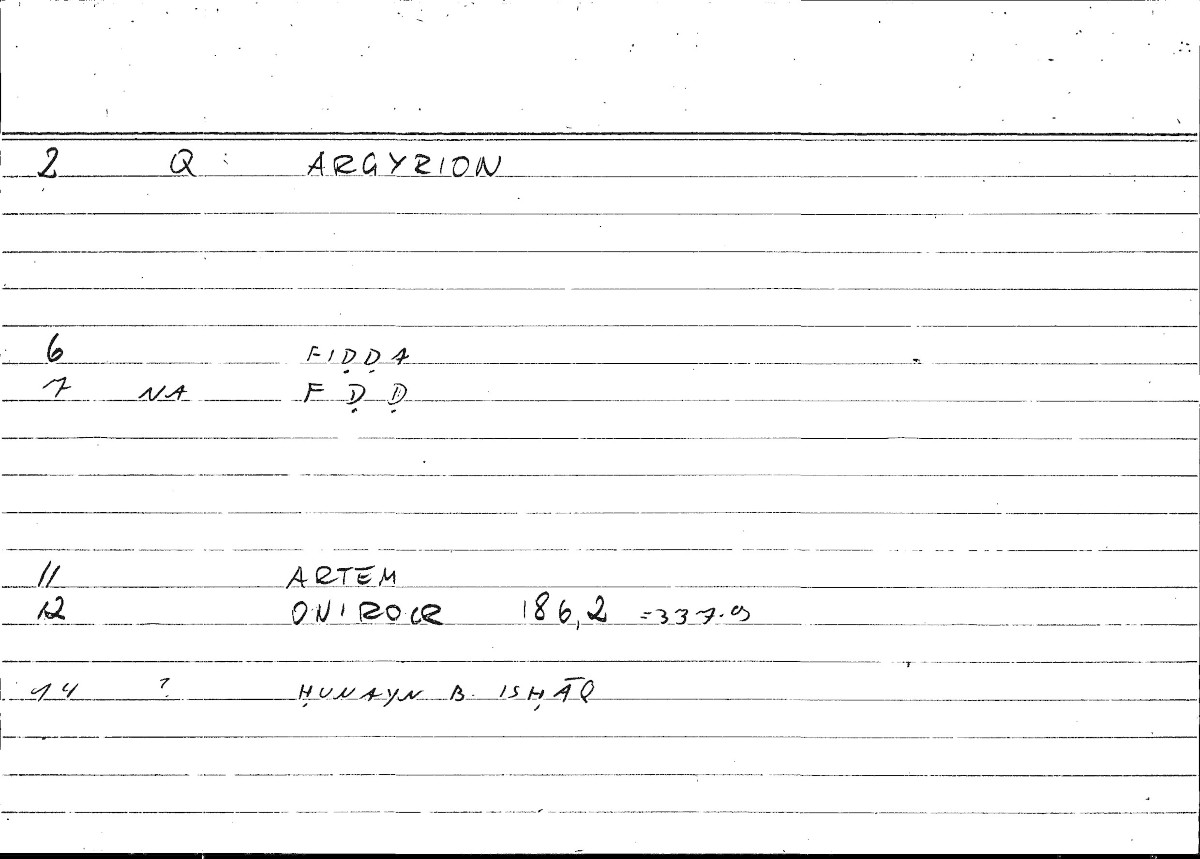 2 Q : ARGYRION
6 FIḌḌA
7 NA F Ḍ Ḍ
11 ARTEM
12 ONIROCR 186,2 =337.9
14 ? ḤUNAYN B. ISḤĀQ